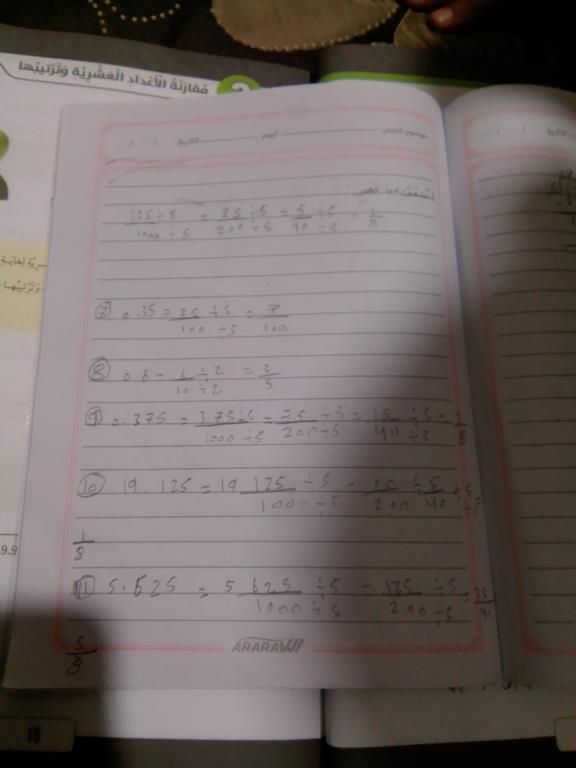 مُقارَنَةُ الْأَعْدادِ الْعَشْرِيَّةِ وَتَرْتيبُها
موضوع الدرس اليوم التاريخ / /
أتحقق من فهمي
125÷5/1000÷5 = 25÷5/200÷5 = 5÷5/40÷5 = 1/8
⑦ 0.35 = 35÷5/100÷5 = 7/100
⑧ 0.6 = 6÷2/10÷2 = 3/5
⑨ 0.375 = 375÷5/1000÷5 = 75÷5/200÷5 = 15÷5/40÷5 = 3/8
⑩ 19.125 = 19 125÷5/1000÷5 = 25÷5/200
1/8
⑪ 5.625 = 5 625÷5/1000÷5 = 125÷5/200÷5 =
5/8
ARARAWI
9.9
15
وَتَرْتيبُها